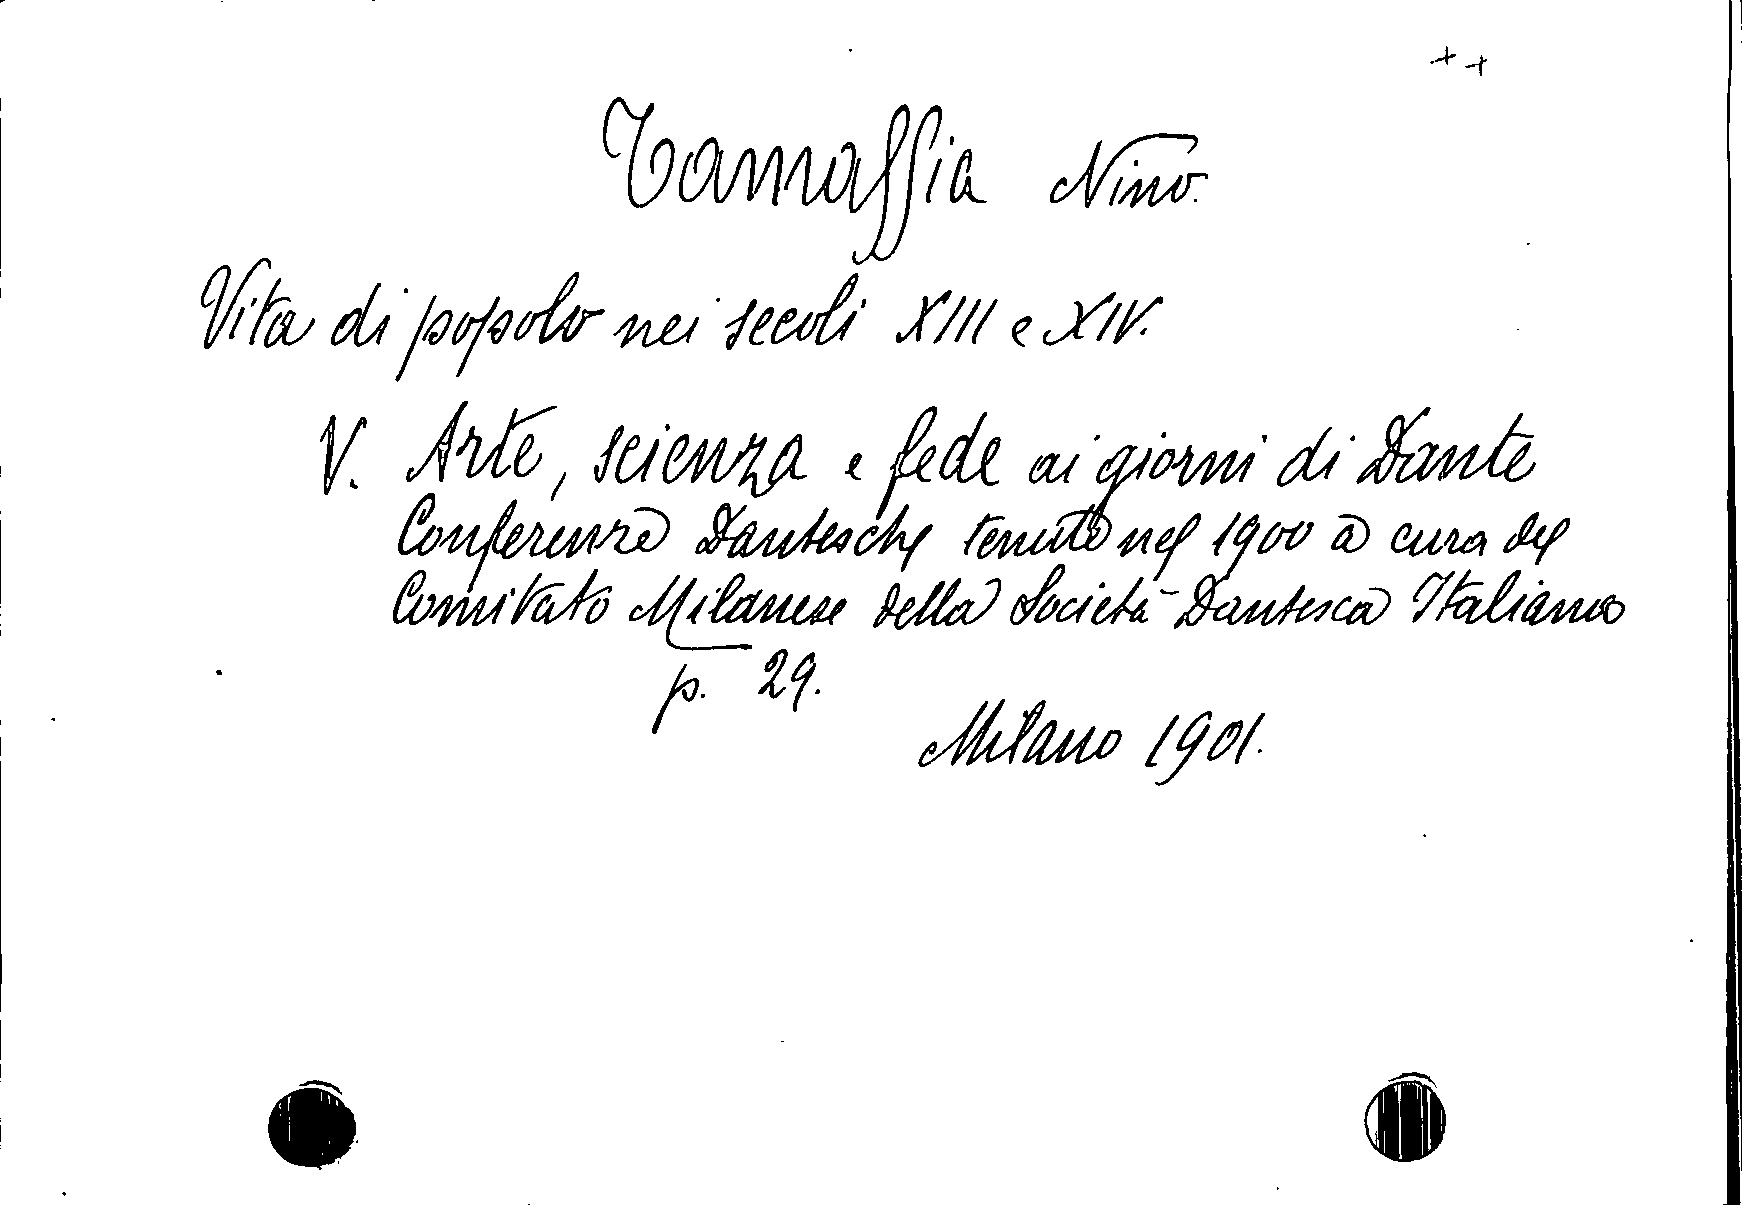 ++
Tamassia Nino.
Vita di popolo nei secoli XIII e XIV.
V. Arte, scienza e fede ai giorni di Dante
Conferenze Dantesche tenute nel 1900 a cura del
Comitato Milanese della Società Dantesca Italiana
p. 29.
Milano 1901.